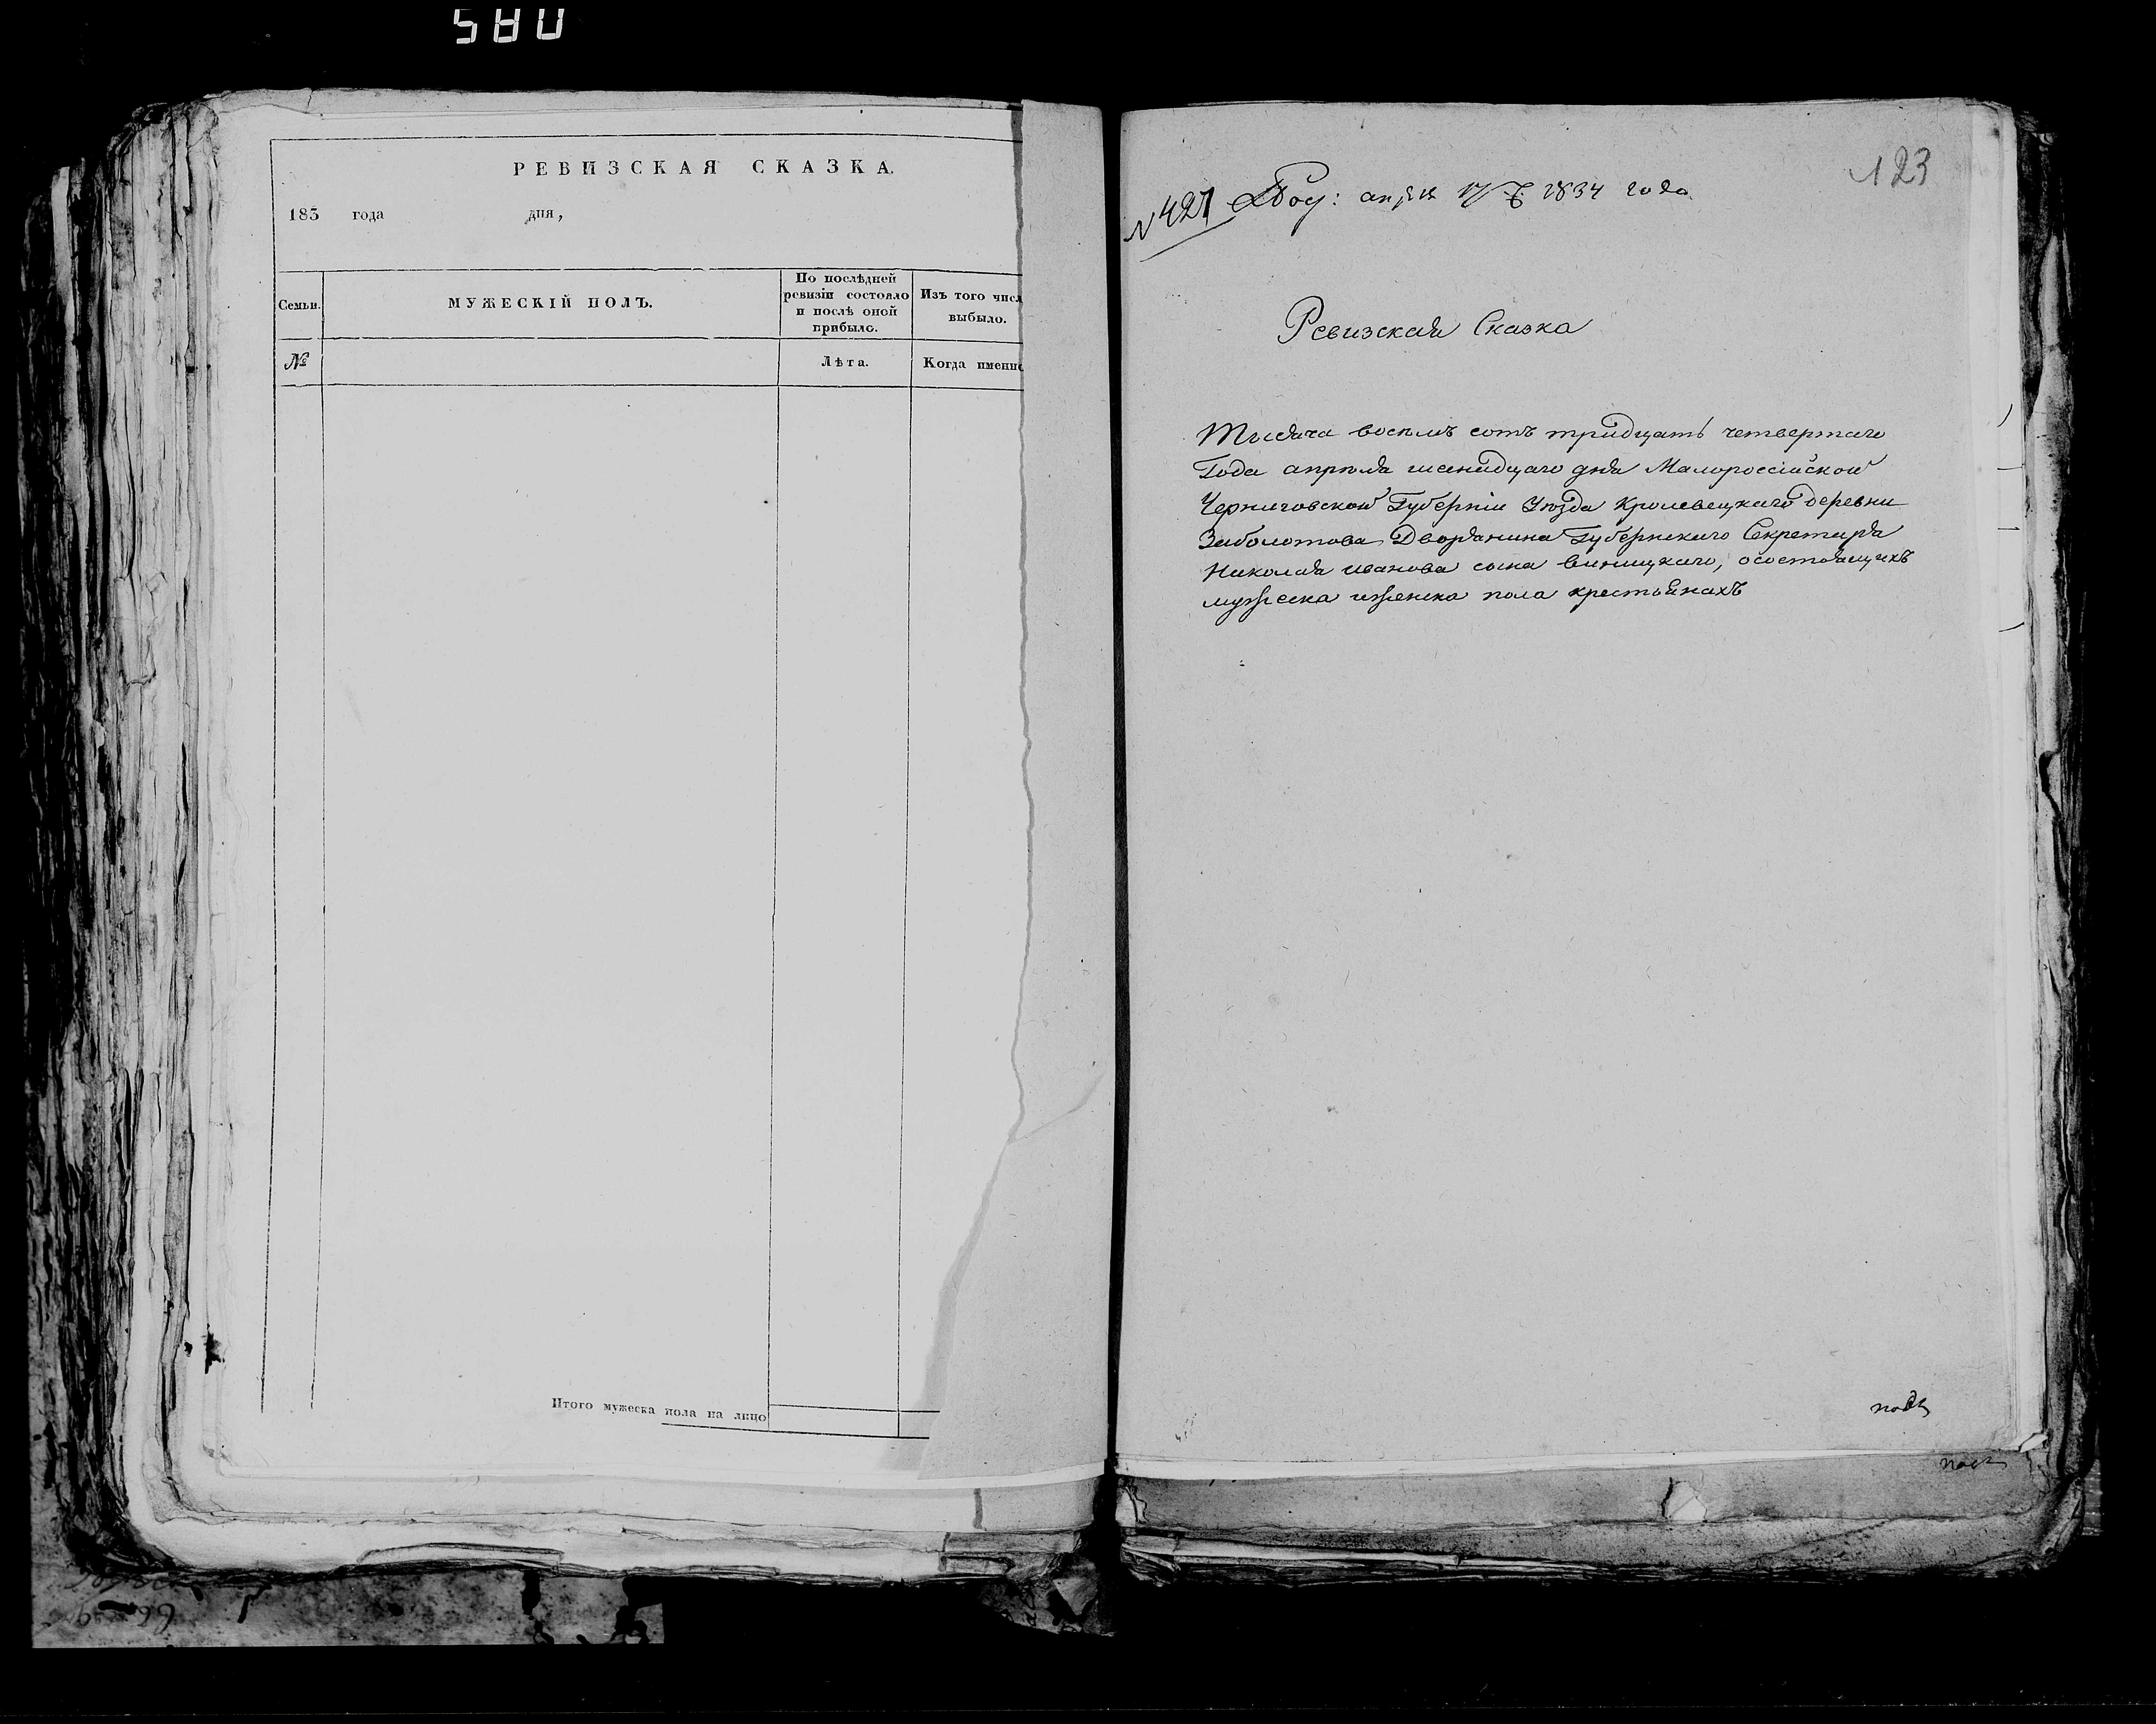 580
РЕВИЗСКАЯ СКАЗКА.
183 года дня,
Семьи.
МУЖЕСКІЙ ПОЛЪ.
По послѣдней
ревизіи состояло
и послѣ оной
прибыло.
Изъ того числ
выбыло.
№
Лѣта.
Когда именно
Итого мужеска пола на лицо
123
N 421 апреля 17 1834 года
Ревизская Сказка
Тысяча восемъ сотъ тридцать четвертаго
Года апрѣля дня Малороссійской
Черниговской Губерніи Уѣзда Кролевецкаго деревни
Заболотова Дворянина Губернскаго Секретаря
Николая иванова сына виницкаго, осостоящихъ
мужеска иженска пола крестьянахъ